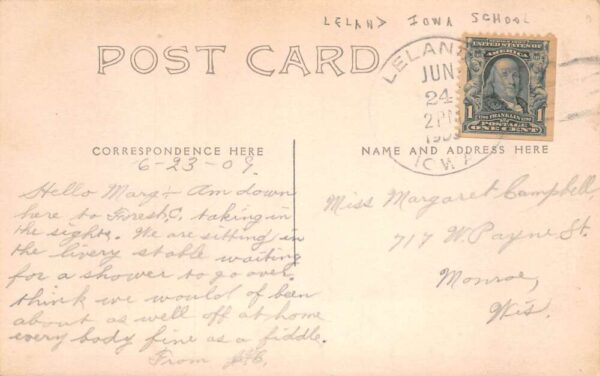 LELAND IOWA SCHOOL
POST CARD
LELAND
JUN
24
2PM
1909
IOWA
UNITED STATES OF
AMERICA
1 FRANKLIN 1
POSTAGE
ONE CENT
CORRESPONDENCE HERE
6-23-09.
Hello Marg:- Am down
here to Forest C. taking in
the sights. We are sitting in
the livery stable waiting
for a shower to go over.
think we would of been
about as well off at home
every body fine as a fiddle.
From
NAME AND ADDRESS HERE
Miss Margaret Campbell,
717 W. Payne St.
Monroe,
Wis.